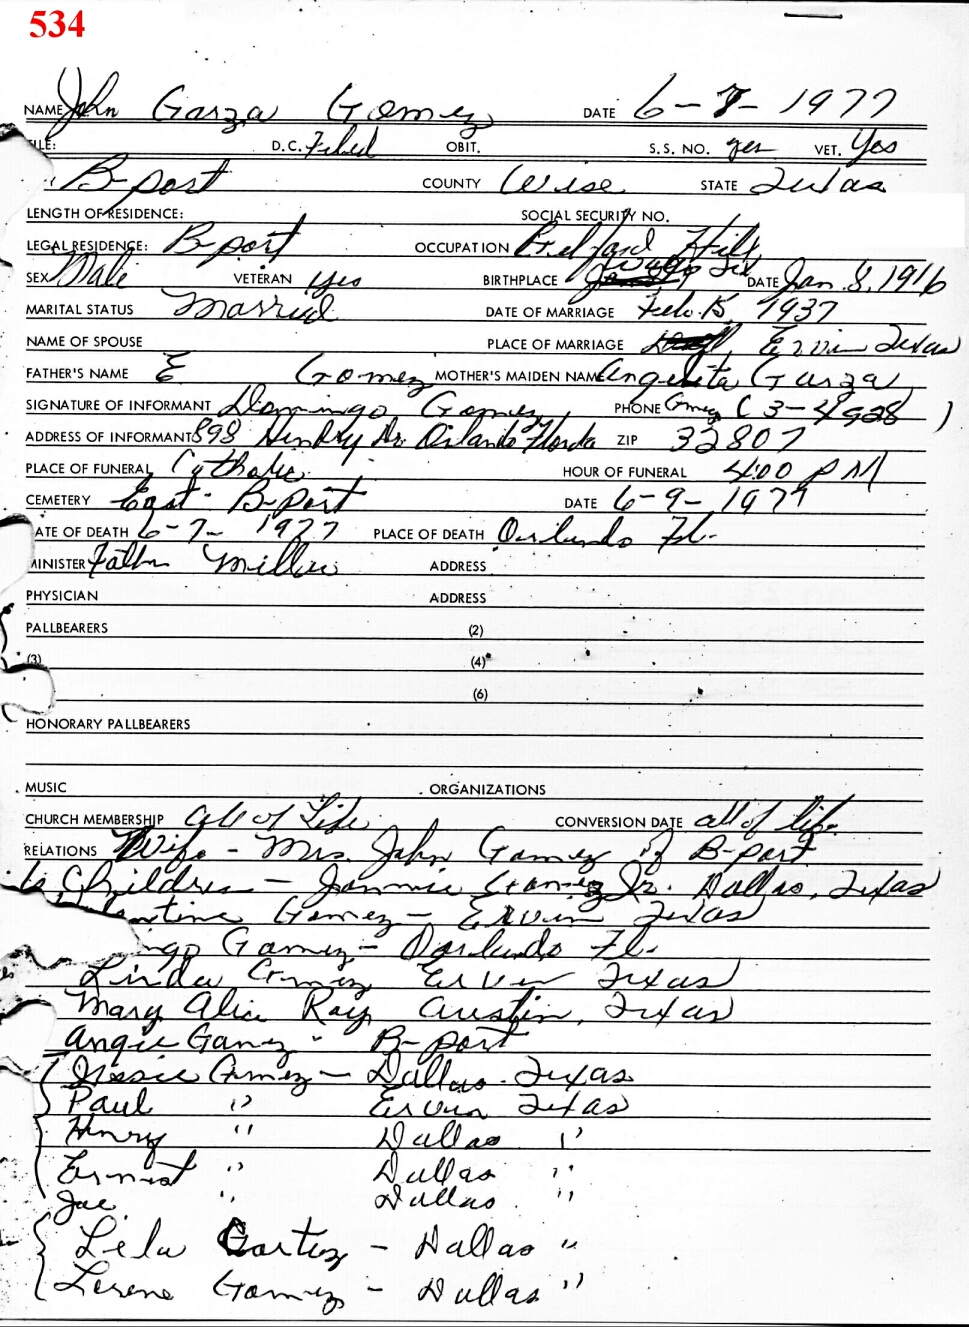 534
NAME John Garza Gomez DATE 6-7-1977
D.C. Filed OBIT. S.S. NO. yes VET. Yes
B-port COUNTY Wise STATE Texas
LENGTH OF RESIDENCE: SOCIAL SECURITY NO.
LEGAL RESIDENCE: B-port OCCUPATION
SEX Male VETERAN yes BIRTHPLACE DATE Jan. 8, 1916
MARITAL STATUS Married DATE OF MARRIAGE Feb. 15, 1937
NAME OF SPOUSE PLACE OF MARRIAGE Ervin Texas
FATHER'S NAME E Gomez MOTHER'S MAIDEN NAME Angelita Garza
SIGNATURE OF INFORMANT Domingo Gomez PHONE 3-4928
ADDRESS OF INFORMANT 898 Hendry Dr. Orlando Florda ZIP 32807
PLACE OF FUNERAL Catholic HOUR OF FUNERAL 4:00 PM
CEMETERY East B-port DATE 6-9-1977
ATE OF DEATH 6-7-1977 PLACE OF DEATH Orlando Fl.
MINISTER Father Miller ADDRESS
PHYSICIAN ADDRESS
PALLBEARERS (2)
(3) (4)
(6)
HONORARY PALLBEARERS
MUSIC ORGANIZATIONS
CHURCH MEMBERSHIP all of Life CONVERSION DATE all of life
RELATIONS Wife - Mrs. John Gomez of B-port
Children - Gomez Jr. Dallas, Texas
ntine Gomez - Ervin Texas
ngo Gomez - Orlando Fl.
Linda Gomez Ervin Texas
Mary Alice Ray Austin, Texas
Angie Gomez - B-port
Jessie Gomez - Dallas - Texas
Paul " Ervin Texas
Henry " Dallas "
Ernest " Dallas "
Joe " Dallas "
Lela Cortez - Dallas "
Gomez - Dallas "